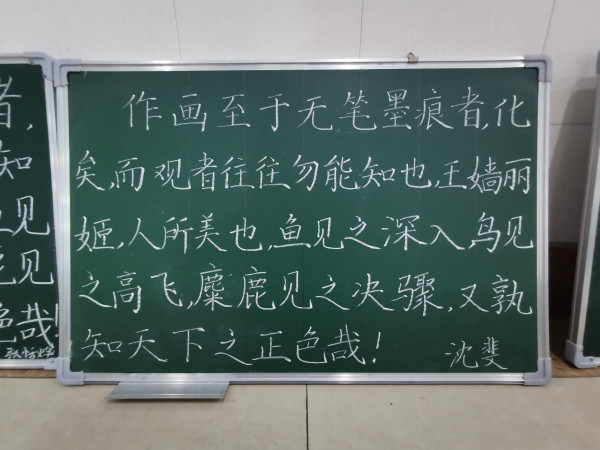 者,
知
见
见
色哉!
作画至于无笔墨痕者,化
矣,而观者往往勿能知也,王嫱丽
姬,人所美也,鱼见之深入,鸟见
之高飞,麋鹿见之决骤,又孰
知天下之正色哉!
沈斐